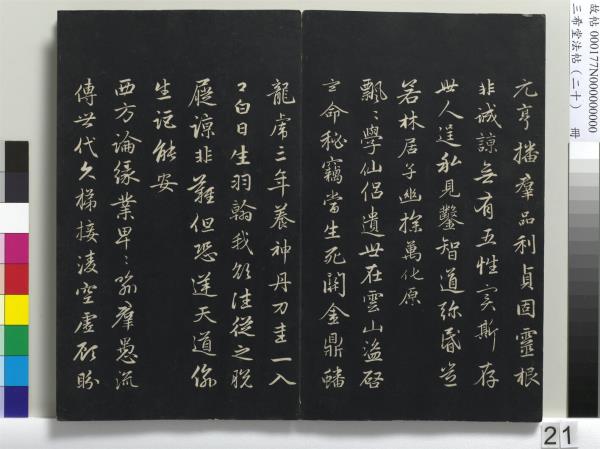 元亨播群品利貞固靈根
非誠諒無有五性實斯存
世人逞私見鑿智道彌昏豈
若林居子幽探萬化原
飄〻學仙侶遺世在雲山盜啓
命秘竊當生死關金鼎蟠
龍虎三年養神丹刀圭一入
口白日生羽翰我欲往從之脫
屣諒非難但恐逆天道偷
生詎能安
西方論緣業卑〻喻群愚流
傳世代久梯接凌空虛顧盼
故帖 000177N000000000
三希堂法帖（二十） 冊
21